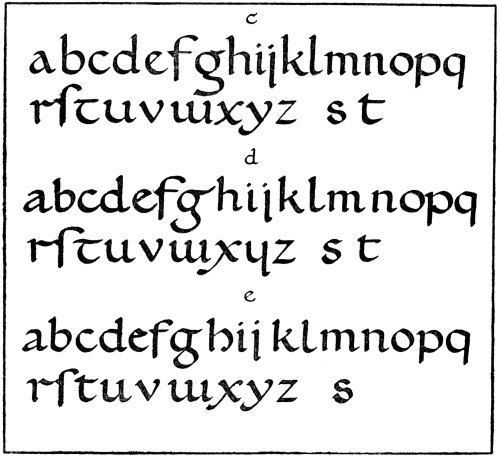 c
abcdefghijklmnopq
rſtuvwxyz s t
d
abcdefghijklmnopq
rſtuvwxyz s t
e
abcdefghijklmnopq
rſtuvwxyz s